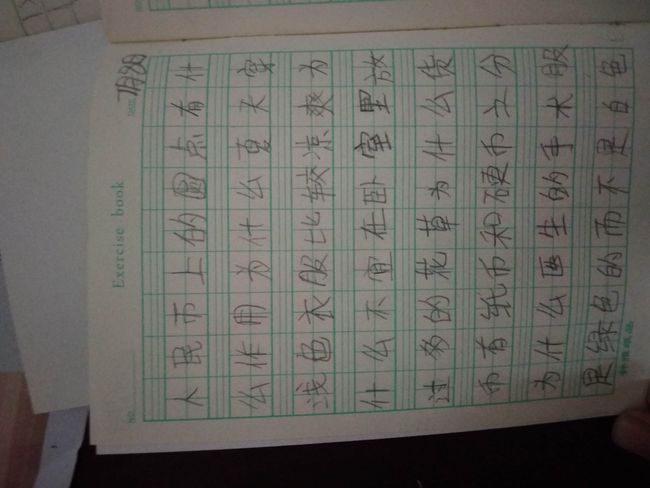 Exercise book
No.
人民币上的圆点有什
么作用为什么夏天穿
浅色衣服比较凉爽为
什么不宜在卧室里放
过多的花草为什么货
币有纸币和硬币之分
为什么医生的手术服
是绿色的而不是白色